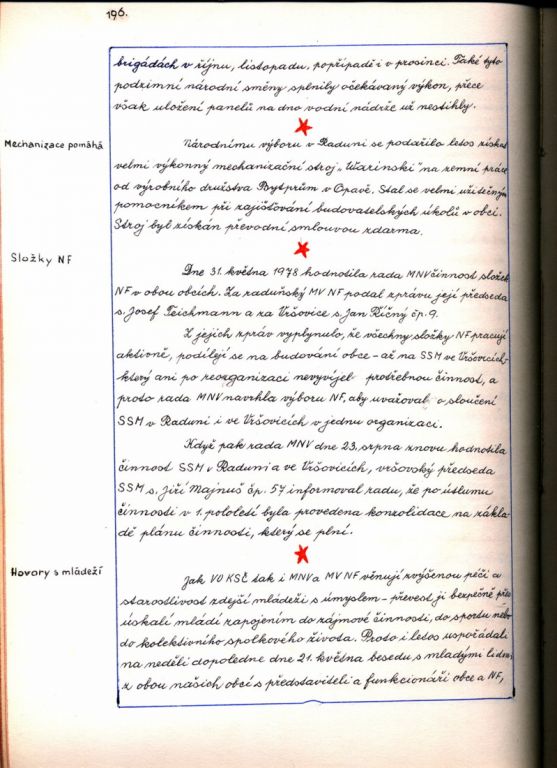 196.
brigádách v říjnu, listopadu, popřípadě i v prosinci. Také tyto
podzimní národní směny splnily očekávaný výkon, přece
však uložení panelů na dno vodní nádrže už nestihly.
Mechanizace pomáhá
Národnímu výboru v Raduni se podařilo letos získat
velmi výkonný mechanizační stroj „Warinski" na zemní práce
od výrobního družstva Bytprům v Opavě. Stal se velmi užitečným
pomocníkem při zajišťování budovatelských úkolů v obci.
Stroj byl získán převodní smlouvou zdarma.
Složky NF
Dne 31. května 1978 hodnotila rada MNV činnost složek
NF v obou obcích. Za raduňský MV NF podal zprávu její předseda
s. Josef Teichmann a za Vršovice s. Jan Říčný čp. 9.
Z jejich zpráv vyplynulo, že všechny složky NF pracují
aktivně, podílejí se na budování obce - až na SSM ve Vršovicích,
který ani po reorganizaci nevyvíjel potřebnou činnost, a
proto rada MNV navrhla výboru NF, aby uvažoval o sloučení
SSM v Raduni i ve Vršovicích v jednu organizaci.
Když pak rada MNV dne 23. srpna znovu hodnotila
činnost SSM v Raduni a ve Vršovicích, vršovský předseda
SSM s. Jiří Majnuš čp. 57 informoval radu, že po útlumu
činnosti v 1. pololetí byla provedena konzolidace na zákla-
dě plánu činnosti, který se plní.
Hovory s mládeží
Jak VO KSČ tak i MNV a MV NF věnují zvýšenou péči a
starostlivost zdejší mládeži s úmyslem - převést ji bezpečně přes
úskalí mládí zapojením do zájmové činnosti, do sportu nebo
do kolektivního spolkového života. Proto i letos uspořádali
na neděli dopoledne dne 21. května besedu s mladými lidmi
z obou našich obcí s představiteli a funkcionáři obce a NF,